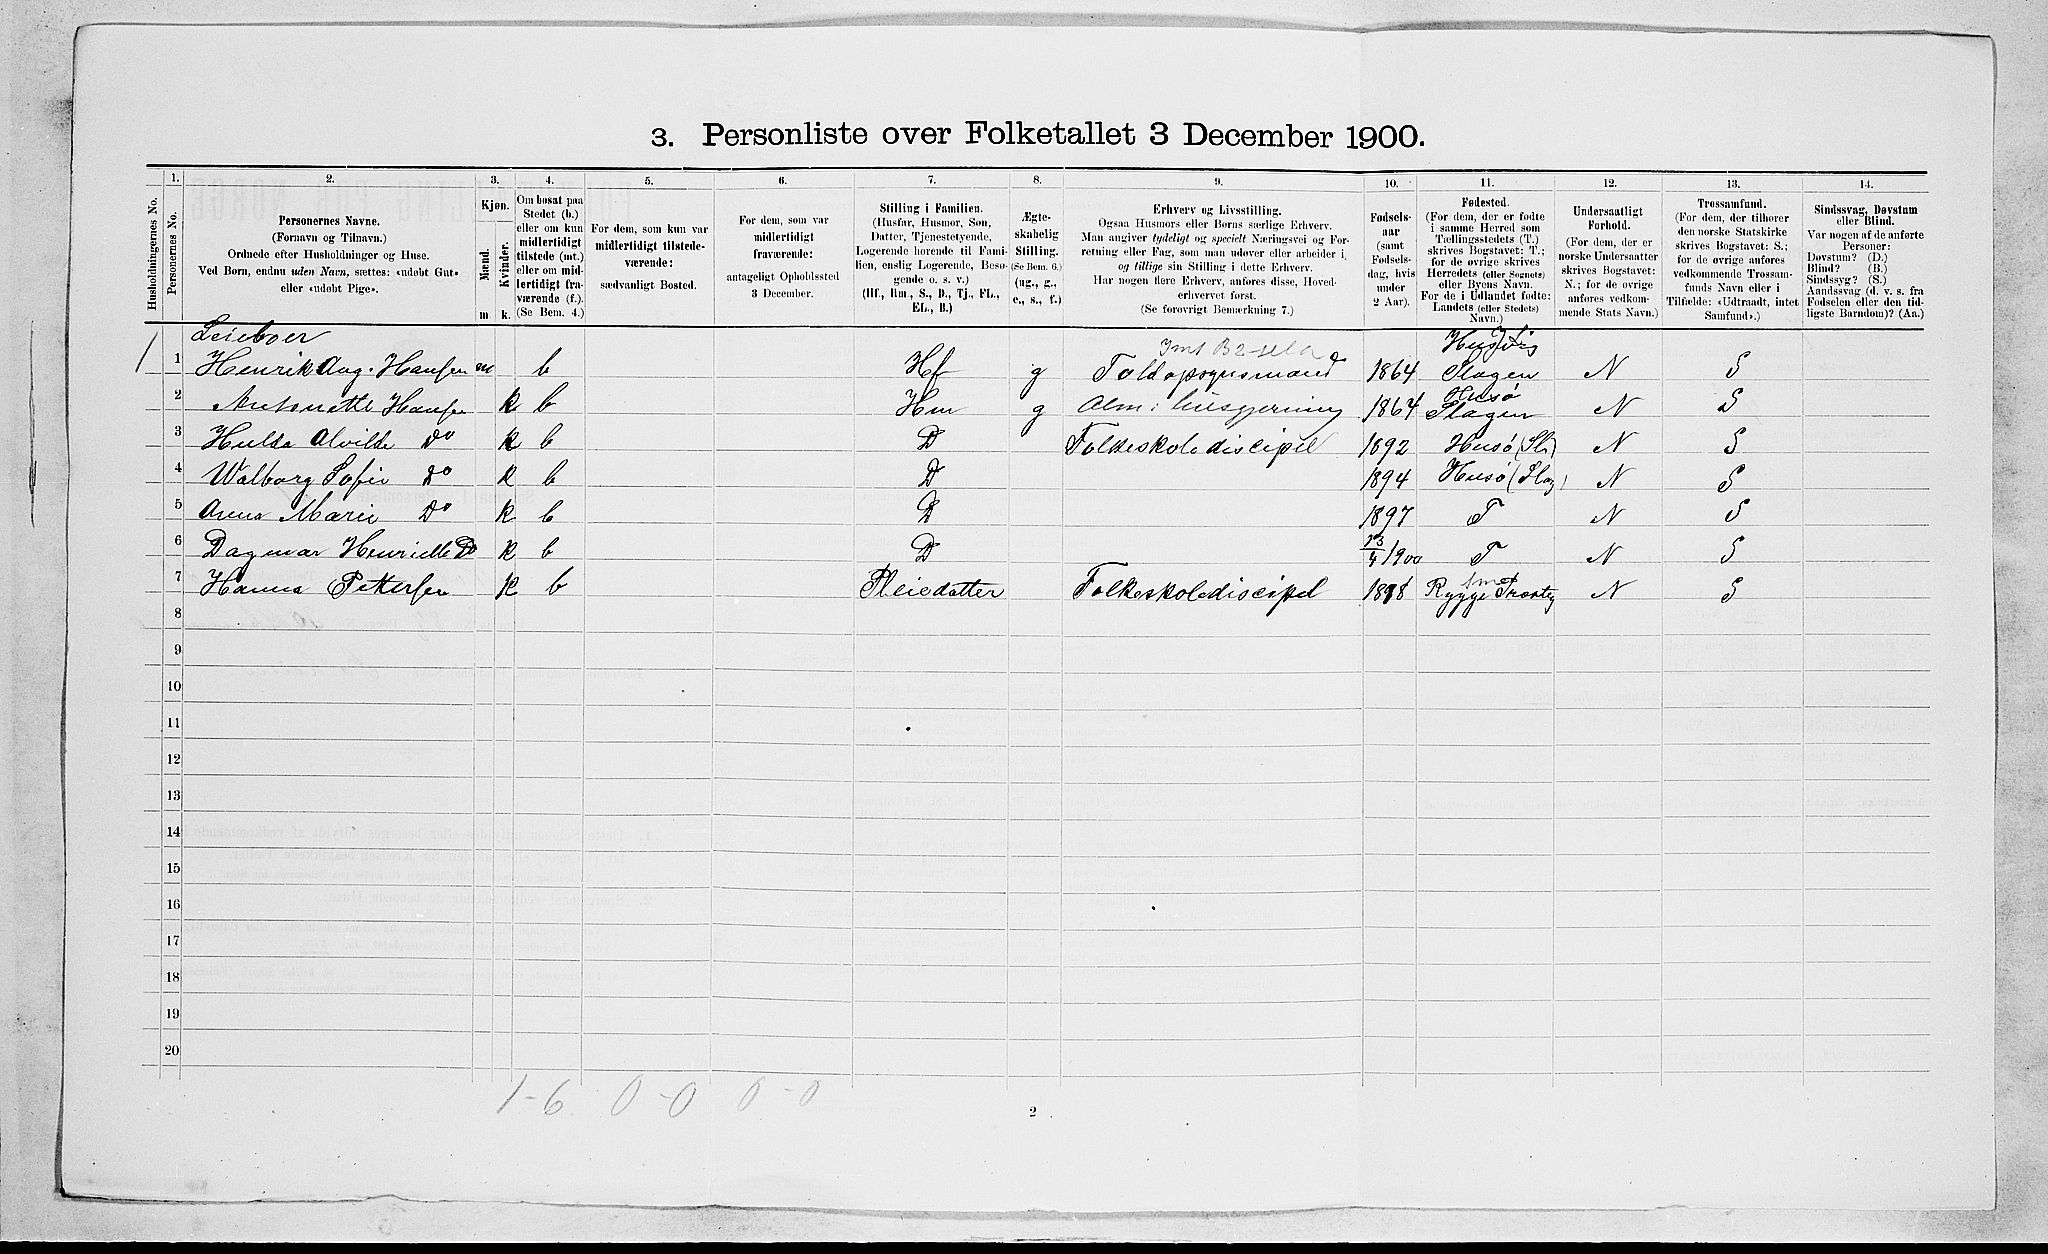 3. Personliste over Folketallet 3 December 1900.
1. 2. 3. 4. 5. 6. 7. 8. 9. 10. 11. 12. 13. 14.
Husholdningernes No.
Personernes No.
Personernes Navne.
(Fornavn og Tilnavn.)
Ordnede efter Husholdninger og Huse.
Ved Børn, endnu uden Navn, sættes: «udøbt Gut»
eller «udøbt Pige».
Kjøn.
Mænd.
Kvinder.
m k.
Om bosat paa
Stedet (b.)
eller om kun
midlertidigt
tilstede (mt.)
eller om mid-
lertidigt fra-
værende (f.).
(Se Bem. 4.)
For dem, som kun var
midlertidigt tilstede-
værende:
sædvanligt Bosted.
For dem, som var
midlertidigt
fraværende:
antageligt Opholdssted
3 December.
Stilling i Familien.
(Husfar, Husmor, Søn,
Datter, Tjenestetyende,
Logerende hørende til Fami-
lien, enslig Logerende, Besø-
gende o. s. v.)
(Hf., Hm., S., D., Tj., FL.,
EL., B.)
Ægte-
skabelig
Stilling.
(Se Bem. 6.)
(ug., g.,
e., s., f.)
Erhverv og Livsstilling.
Ogsaa Husmors eller Børns særlige Erhverv.
Man angiver tydeligt og specielt Næringsvei og For-
retning eller Fag, som man udøver eller arbeider i,
og tillige sin Stilling i dette Erhverv.
Har nogen flere Erhverv, anføres disse, Hoved-
erhvervet først.
(Se forøvrigt Bemærkning 7.)
Fødsels-
aar
(samt
Fødsels-
dag, hvis
under
2 Aar).
Fødested.
(For dem, der er fødte
i samme Herred som
Tællingsstedets (T.)
skrives Bogstavet: T.;
for de øvrige skrives
Herredets (eller Sognets)
eller Byens Navn.
For de i Udlandet fødte:
Landets (eller Stedets)
Navn.)
Undersaatligt
Forhold.
(For dem, der er
norske Undersaatter
skrives Bogstavet:
N.; for de øvrige
anføres vedkom-
mende Stats Navn.)
Trossamfund.
(For dem, der tilhører
den norske Statskirke
skrives Bogstavet: S.;
for de øvrige anføres
vedkommende Trossam-
funds Navn eller i
Tilfælde: «Udtraadt, intet
Samfund».)
Sindssvag, Døvstum
eller Blind.
Var nogen af de anførte
Personer:
Døvstum? (D.)
Blind? (B.)
Sindssyg? (S.)
Aandssvag (d. v. s. fra
Fødselen eller den tid-
ligste Barndom)? (Aa.)
Leieboer
1 1 Henrik Aug. Hansen m b Hf g Toldopsynsmand 1864 Slagen N S
2 Antonette Hansen k b Hm g Alm: husgjerning 1864 Husø Slagen N S
3 Hulda Alvilde Do k b D Folkeskolediscipel 1892 Husø (Sl) N S
4 Walborg Sofie Do k b D 1894 Husø (Slag) N S
5 Anna Marie Do k b D 1897 T N S
6 Dagmar Henriette Do k b D 23/4 1900 T N S
7 Hanna Pettersen k b Pleiedatter Folkeskolediscipel 1888 Rygge N S
8
9
10
11
12
13
14
15
16
17
18
19
20
1-6 0-0 0-0
2